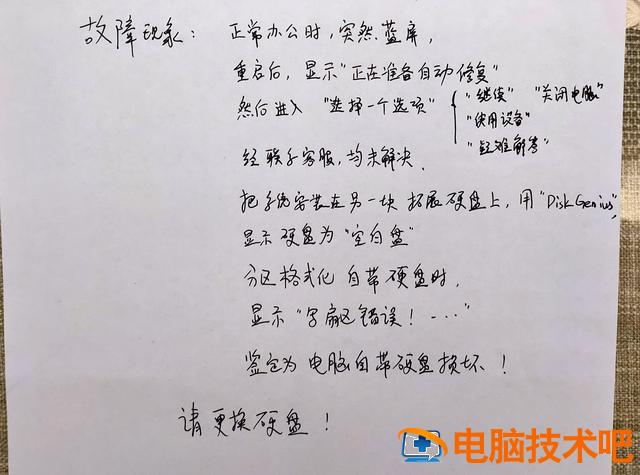 故障现象： 正常办公时，突然蓝屏，
重启后，显示"正在准备自动修复"
然后进入 "选择一个选项" { "继续" "关闭电脑"
"使用设备"
"疑难解答"
经联系客服，均未解决．
把系统安装在另一块拓展硬盘上，用"DiskGenius"
显示硬盘为"空白盘"
分区格式化自带硬盘时，
显示"字扇区错误！----"
鉴定为电脑自带硬盘损坏！
请更换硬盘！
电脑技术吧